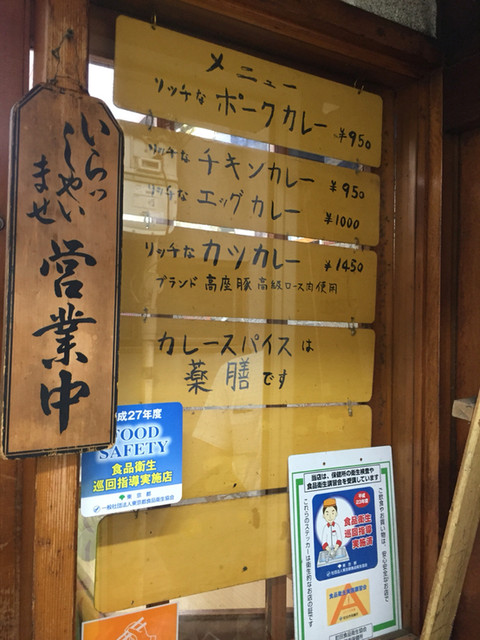 いらっ
しゃい
ませ
営業中
メニュー
リッチな ポークカレー ¥950
リッチな チキンカレー ¥950
リッチな エッグカレー ¥1000
リッチな カツカレー ¥1450
ブランド 高座豚 高級ロース肉使用
カレースパイスは
薬膳です
平成27年度
FOOD
SAFETY
食品衛生
巡回指導実施店
東京都
一般社団法人東京都食品衛生協会
当店は、保健所の衛生検査や
食品衛生講習会を受講しています
食品衛生
巡回指導
実施済
ご飲食やお買い物は、安心安全なお店で
これらのステッカーは衛生的なお店の証です